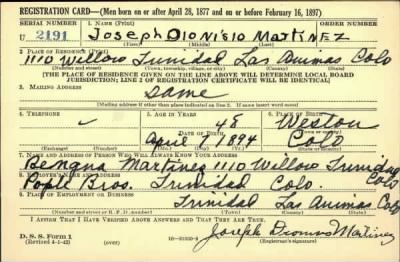 REGISTRATION CARD—(Men born on or after April 28, 1877 and on or before February 16, 1897)
SERIAL NUMBER 1. NAME (Print) ORDER NUMBER
U 2191 Joseph Dionisio Martinez
(First) (Middle) (Last)
2. PLACE OF RESIDENCE (Print)
1110 Willow Trinidad Las Animas Colo
(Number and street) (Town, township, village, or city) (County) (State)
[THE PLACE OF RESIDENCE GIVEN ON THE LINE ABOVE WILL DETERMINE LOCAL BOARD
JURISDICTION; LINE 2 OF REGISTRATION CERTIFICATE WILL BE IDENTICAL]
3. MAILING ADDRESS
Same
[Mailing address if other than place indicated on line 2. If same insert word same]
4. TELEPHONE 5. AGE IN YEARS 6. PLACE OF BIRTH
48 Weston
DATE OF BIRTH
April 1894 Colo
(Exchange) (Number) (Mo.) (Day) (Yr.) (State or country)
7. NAME AND ADDRESS OF PERSON WHO WILL ALWAYS KNOW YOUR ADDRESS
Benigna Martinez 1110 Willow Trinidad Colo
8. EMPLOYER'S NAME AND ADDRESS
Pople Bros. Trinidad Colo.
9. PLACE OF EMPLOYMENT OR BUSINESS
Trinidad Las Animas Colo
(Number and street or R. F. D. number) (Town) (County) (State)
I AFFIRM THAT I HAVE VERIFIED ABOVE ANSWERS AND THAT THEY ARE TRUE.
D. S. S. Form 1
(Revised 4-1-42) (over) Joseph Dionisio Martinez
(Registrant's signature)